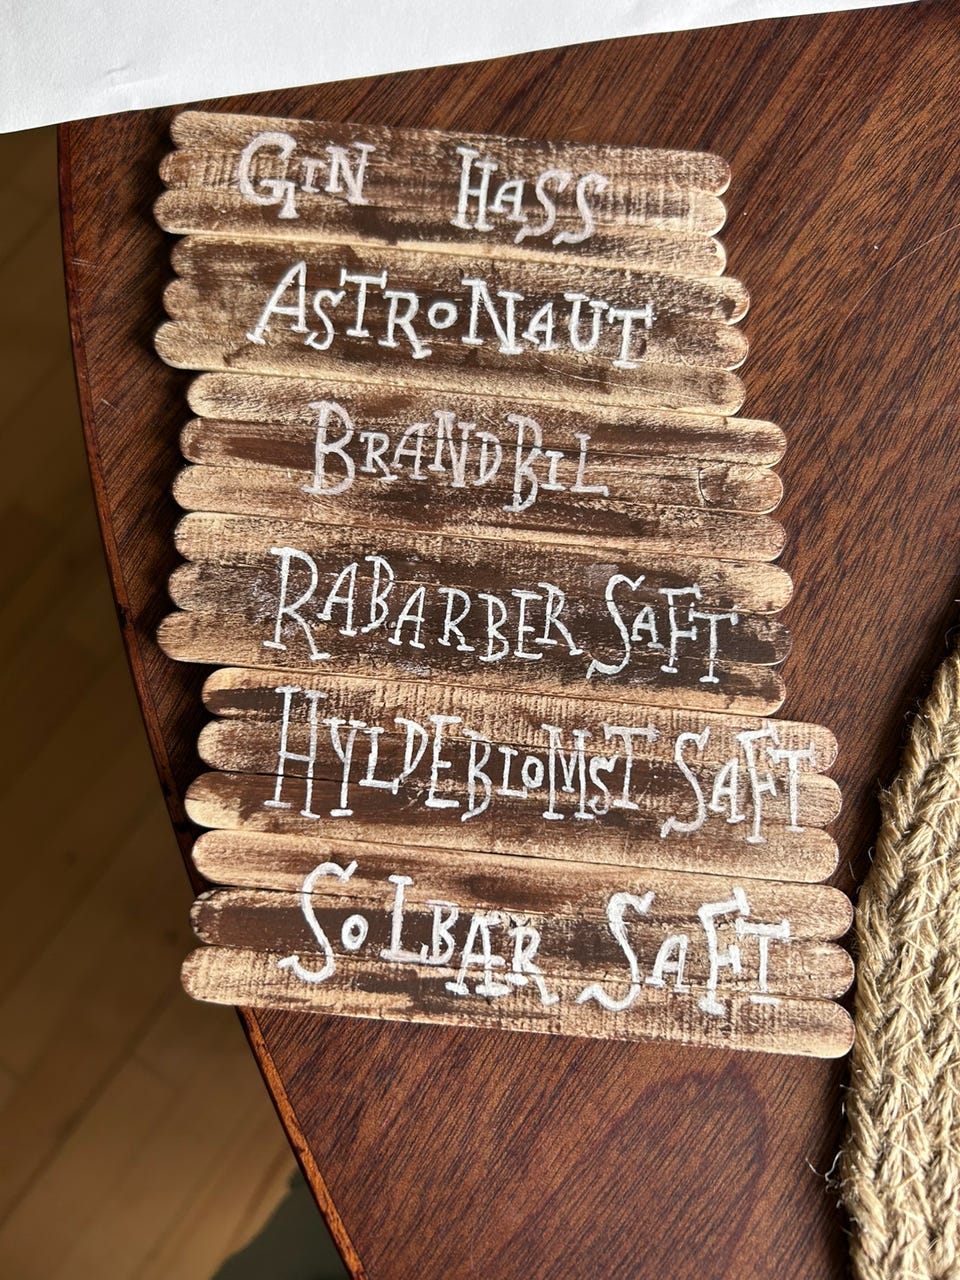 GIN HASS
ASTRONAUT
BRANDBIL
RABARBER SAFT
HYLDEBLOMST SAFT
SOLBÆR SAFT